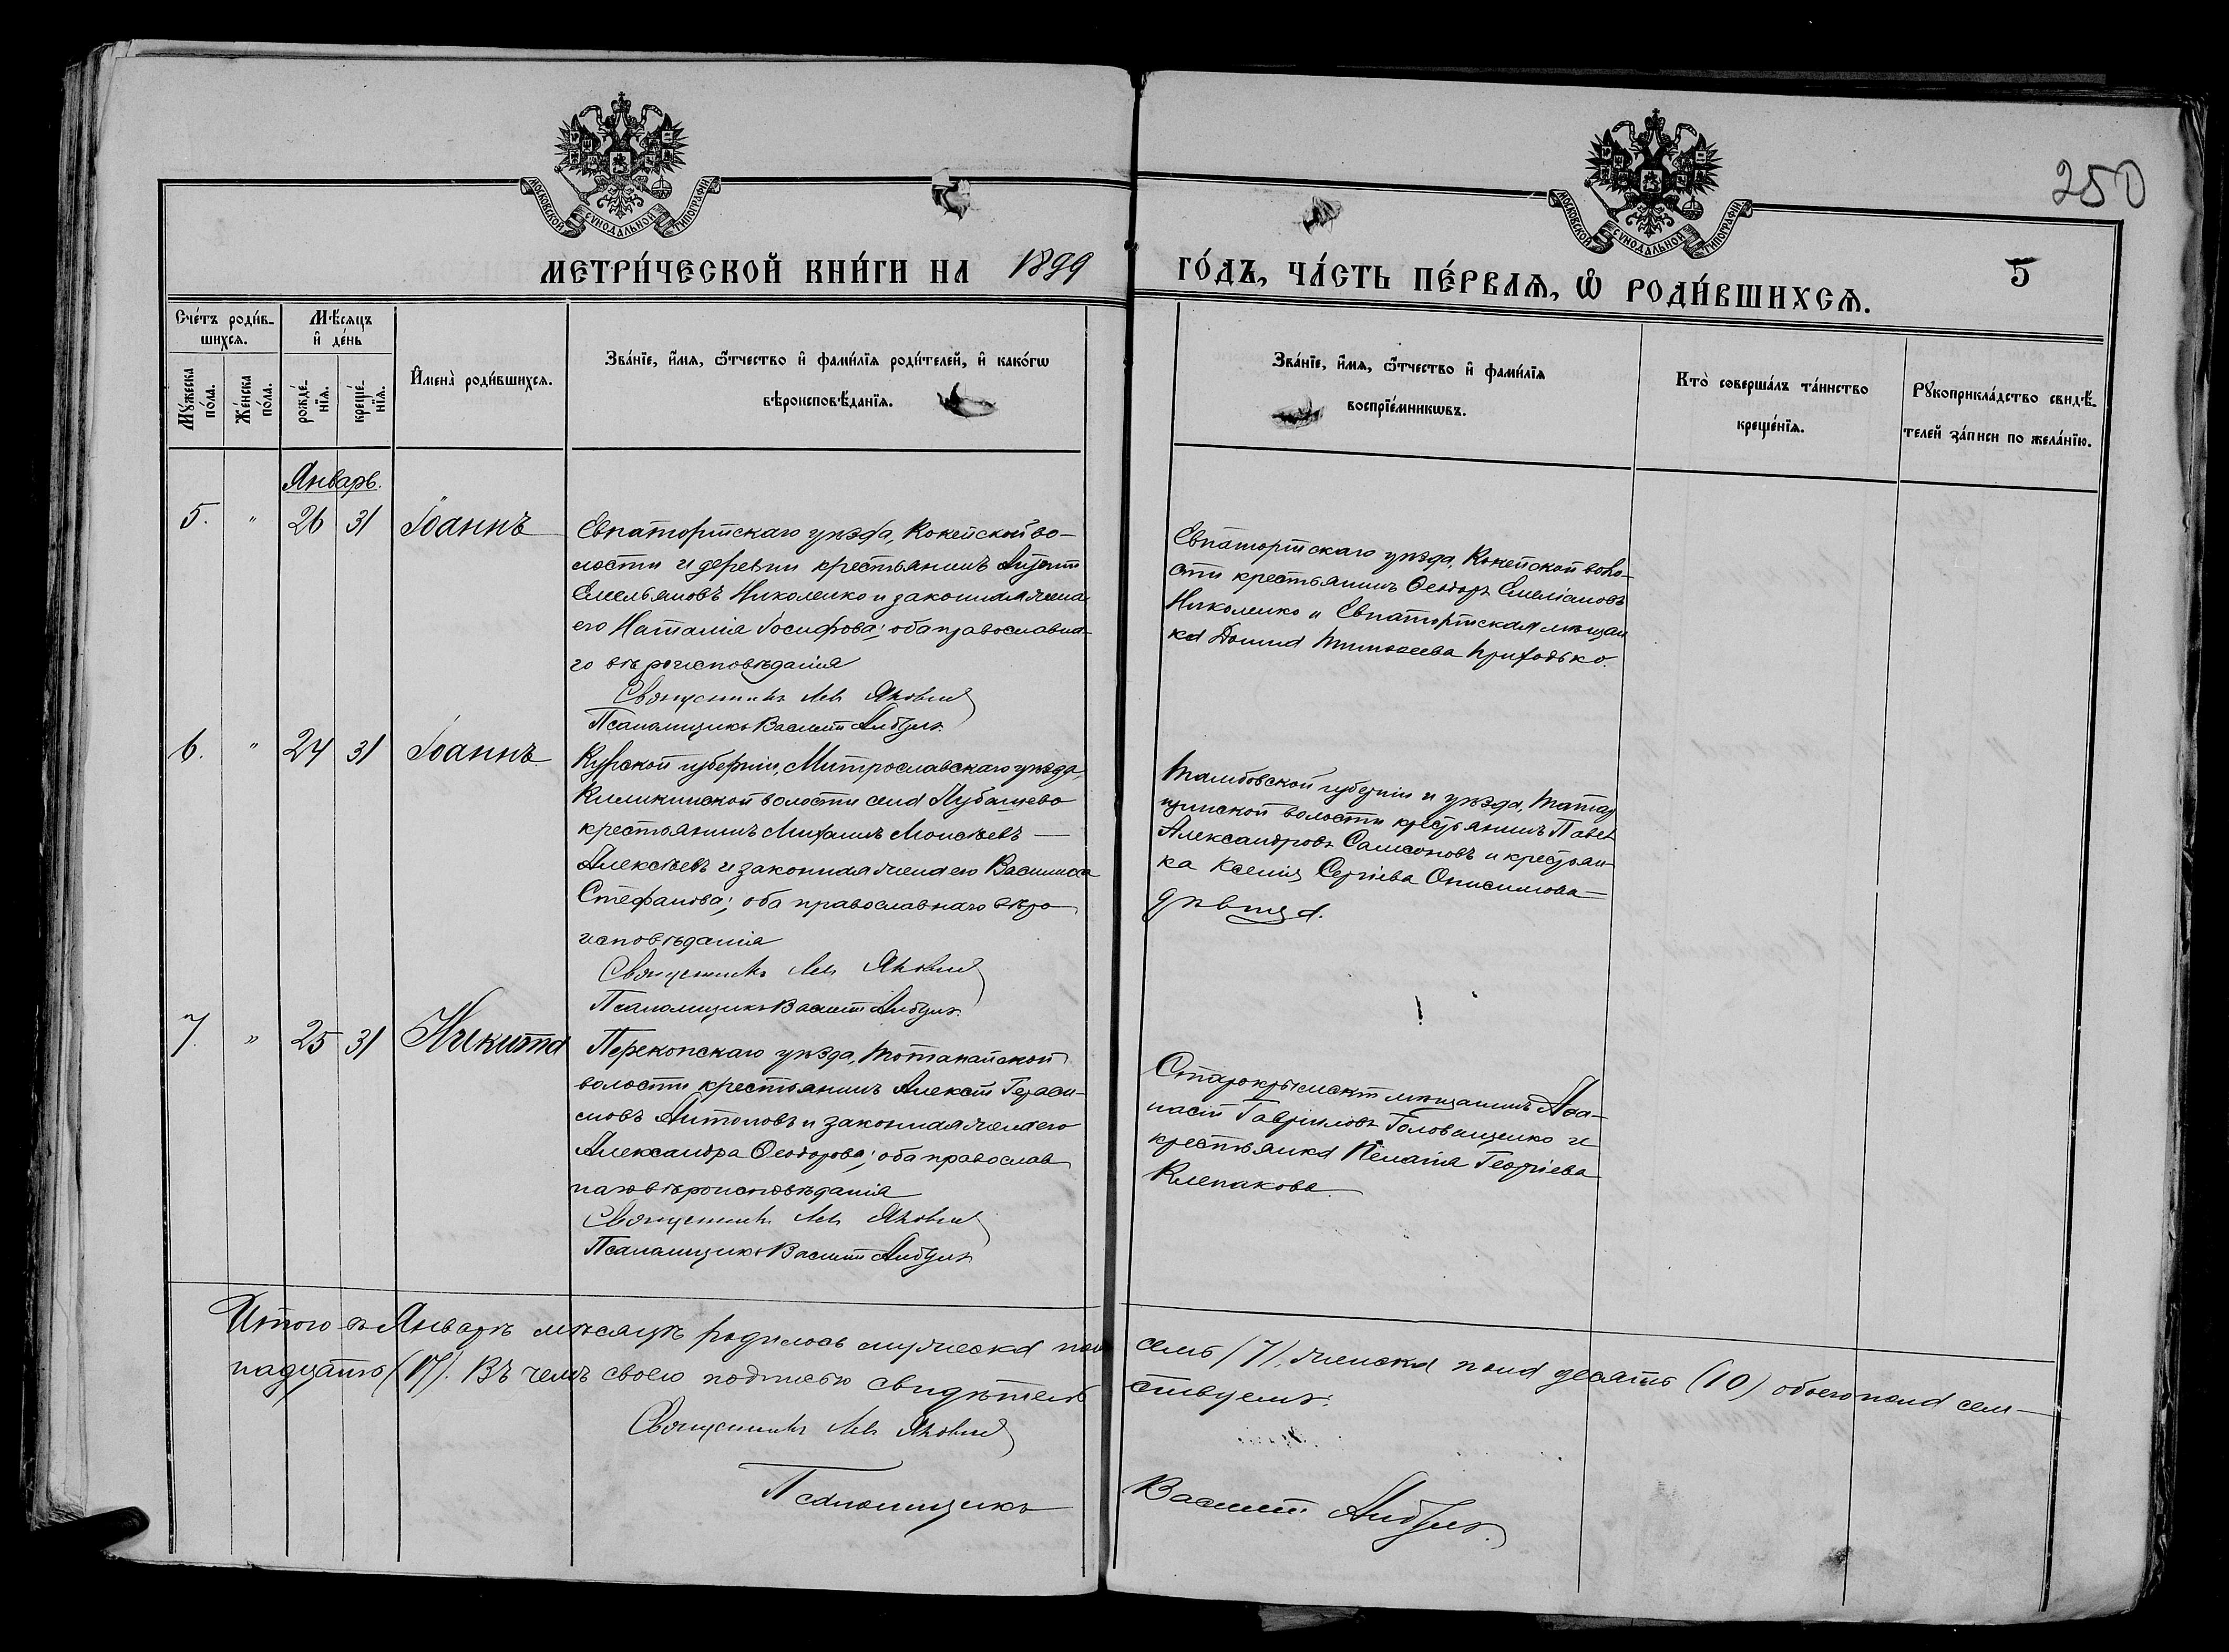 250
МОСКОВСКОЙ СѴНОДАЛЬНОЙ ТИПОГРАФІИ
МОСКОВСКОЙ СѴНОДАЛЬНОЙ ТИПОГРАФІИ
МЕТРИ́ЧЕСКОЙ КНИ́ГИ НА 1899 ГО́ДЪ, ЧА́СТЬ ПЕ́РВАѦ, Ѡ РОДИ́ВШИХСѦ.
5
Сче́тъ роди́в-
шихсѧ.
Мѣ́сѧцъ
и҆ де́нь
Мꙋ́жеска
по́ла.
Же́нска
по́ла.
рожде́-
нїѧ.
креще́-
нїѧ.
И҆мена̀ роди́вшихсѧ.
Зва́нїе, и҆́мѧ, ѻ҆́тчество и҆ фами́лїѧ роди́телей, и҆ како́гѡ
вѣроисповѣ́данїѧ.
Зва́нїе, и҆́мѧ, ѻ҆́тчество и҆ фами́лїѧ
воспрїе́мникѡвъ.
Кто̀ соверша́лъ та́инство
креще́нїѧ.
Рꙋкоприкла́дство свидѣ́-
телей за́писи по жела́нїю.
Январь.
5. " 26 31 Іоаннъ
Евпаторійскаго уѣзда, Кокейской во-
лости и деревни крестьянинъ
Емельяновъ Николенко и законная жена
его Наталія Іосифова; оба православна-
го вѣроисповѣданія
Священникъ Левъ
Псаломщикъ Василій
Евпаторійскаго уѣзда, Кокейской воло-
сти крестьянинъ Ѳеодоръ Емеліановъ
Николенко и Евпаторійская мѣщан
ка Домна Тимоѳеева Приходько.
6. " 24 31 Іоаннъ
Курской губерніи, Митрославскаго уѣзда,
волости села
крестьянинъ Михаилъ Моисѣевъ —
Алексѣевъ и законная жена его Василисса
Стефанова; оба православнаго вѣро
исповѣданія
Священникъ Левъ
Псаломщикъ Василій
Тамбовской губерніи и уѣзда,
волости крестьянинъ Павелъ
Александровъ Самсоновъ и крестьян-
ка Ксенія Сергіева Онисимова —
дѣвица.
7. " 25 31 Никита
Перекопскаго уѣзда,
волости крестьянинъ Алексій Гераси-
мовъ Антоновъ и законная жена его
Александра Ѳеодорова; оба православ
наго вѣроисповѣданія
Священникъ Левъ
Псаломщикъ Василій
Старокрымскій мѣщанинъ Аѳа-
насій Гавріиловъ Голованенко и
крестьянка Пелагія Георгіева
Клепакова.
Итого въ Январѣ мѣсяцѣ родилось мужеска пола семь (7), женска пола десять (10) обоего пола сем-
надцать (17). Въ чемъ своею подписью свидѣтельствуемъ:
Священникъ Левъ
Псаломщикъ Василій